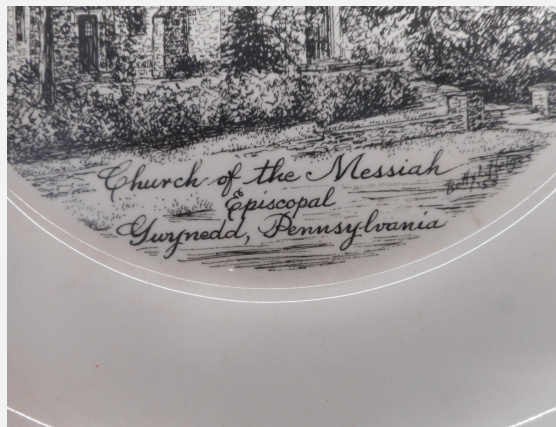 Church of the Messiah
Episcopal
Gwynedd, Pennsylvania